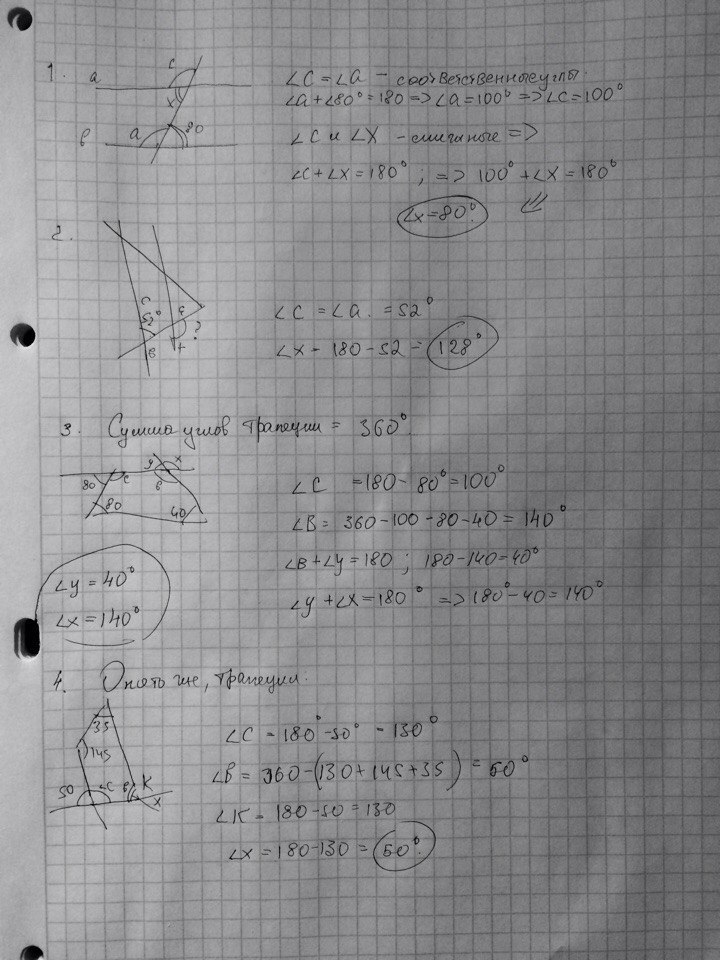 1.
a
c
x
в
a
80
∠C = ∠a - соответственные углы.
∠a + ∠80° = 180 => ∠a = 100° => ∠C = 100°
∠C и ∠X - смежные =>
∠C + ∠X = 180° ; => 100° + ∠X = 180°
∠x = 80°.
2.
c
52°
a
?
в
x
∠C = ∠a. = 52°
∠X - 180 - 52 = 128°
3. Сумма углов трапеции = 360°.
80
c
y
x
в
80
40
∠C = 180 - 80° = 100°
∠B = 360 - 100 - 80 - 40 = 140°
∠B + ∠y = 180 ; 180 - 140 = 40°
∠y + ∠X = 180° => 180° - 40 = 140°
∠y = 40°
∠x = 140°
4. Опять же, трапеция.
35
145
50
∠C
в
K
x
∠C = 180° - 50° = 130°
∠B = 360 - (130 + 145 + 35) = 50°
∠K = 180 - 50 = 130
∠X = 180 - 130 = 50°.